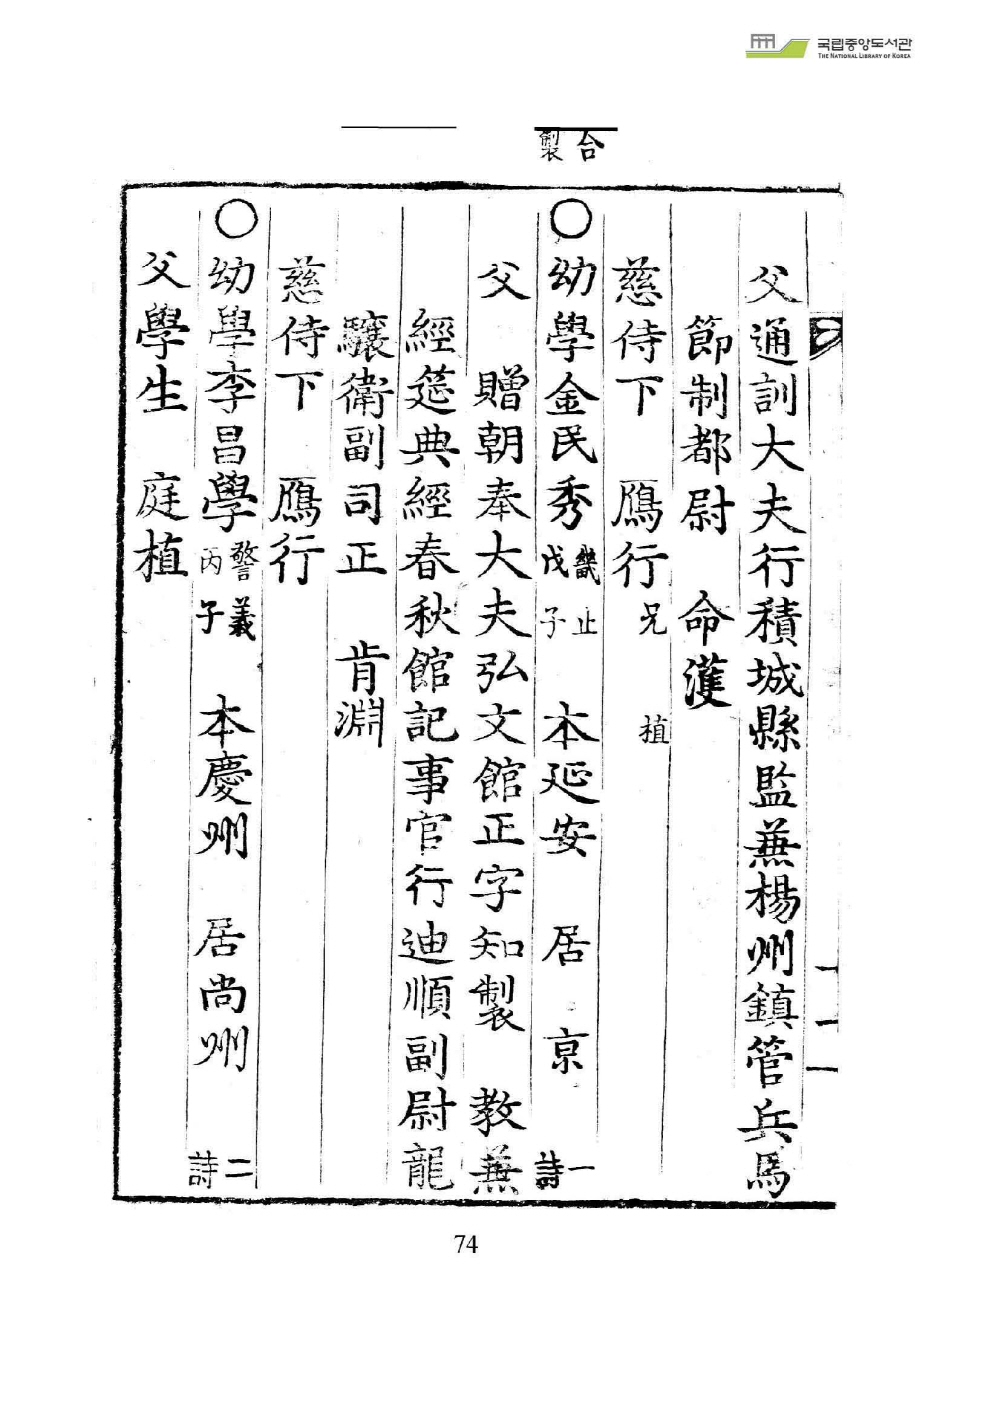 국립중앙도서관
THE NATIONAL LIBRARY OF KOREA
合製
父通訓大夫行積城縣監兼楊州鎮管兵馬
節制都尉 命濩
慈侍下 鴈行 兄 植
○幼學金民秀 幾止 戊子 本延安 居 京 一詩
父 贈朝奉大夫弘文館正字知製 教兼
經筵典經春秋館記事官行迪順副尉龍
驤衛副司正 肯淵
慈侍下 鴈行
○幼學李昌學 警義 丙子 本慶州 居尚州 二詩
父學生 庭植
74